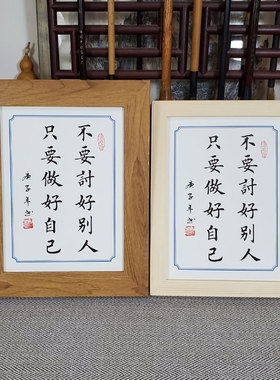 不要討好别人
只要做好自己
庚子年
不要討好别人
只要做好自己
庚子年